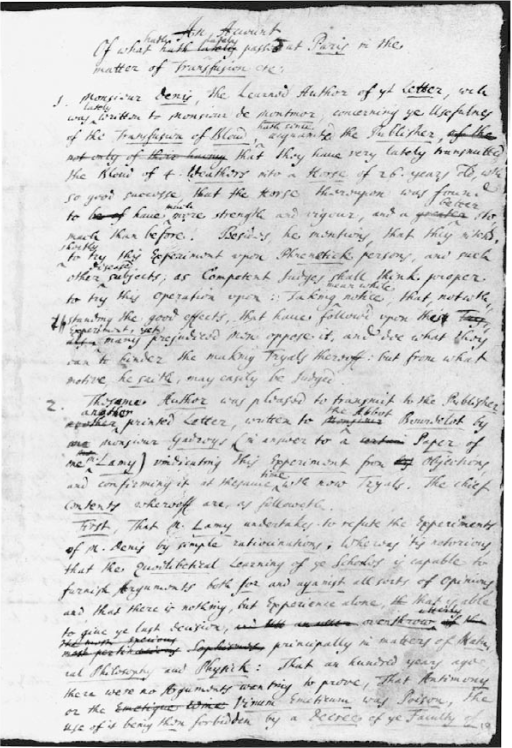 An Account
Of what hath lately passed at Paris in the
matter of Transfusion etc:
1. Monsieur Denis, the Learned Author of yt Letter, wch
was lately written to Monsieur de Montmor, concerning ye Usefulnes
of the Transfusion of Bloud, hath since acquainted the Publisher,
that they have very lately transmitted
the Bloud of 4. Weathers into a Horse of 26. years old, with
so good successe, that the Horse thereupon was found
to have much more strength and vigour, and a better sto-
mach than before. Besides, he mentions, that they intend,
shortly to try this Experiment upon Phrenetick persons, and such
other diseased subjects, as Competent Judges shall think proper
to try this operation upon: Taking notice, mean while, that, notwith-
standing the good effects, that have follow'd upon these
Experiments, yet many prejudiced men oppose it, and doe what they
can to hinder the making Tryals thereoff: but from what
motive, he saith, may easily be Judged.
2. The same Author was pleased to transmit to the Publisher
another printed Letter, written to the Abbot Bourdelot by
Monsieur Gadroys (in answer to a Paper of
one M. Lamy) vindicating this Experiment from Objections
and confirming it at the same time with new Tryals. The chief
contents whereoff are, as followeth.
First, That M. Lamy undertakes to refute the Experiments
of M. Denis by simple ratiocinations, Whereas 'tis notorious
that the Quodlibetical Learning of ye Schools is capable to
furnish Arguments both for and against all sorts of Opinions
and that there is nothing, but Experience alone, that is able
to give ye last decision,
principally in matters of Natu-
ral Philosophy and Physick: That an hundred years agoe
there were no Arguments wanting to prove, That Antimony
or the Vinum Emeticum was Poison, The
use of it being then forbidden by a Decree of ye Faculty of